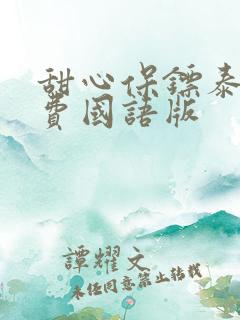 甜心保鏢泰
費國語版
譚耀文
未经同意禁止转载